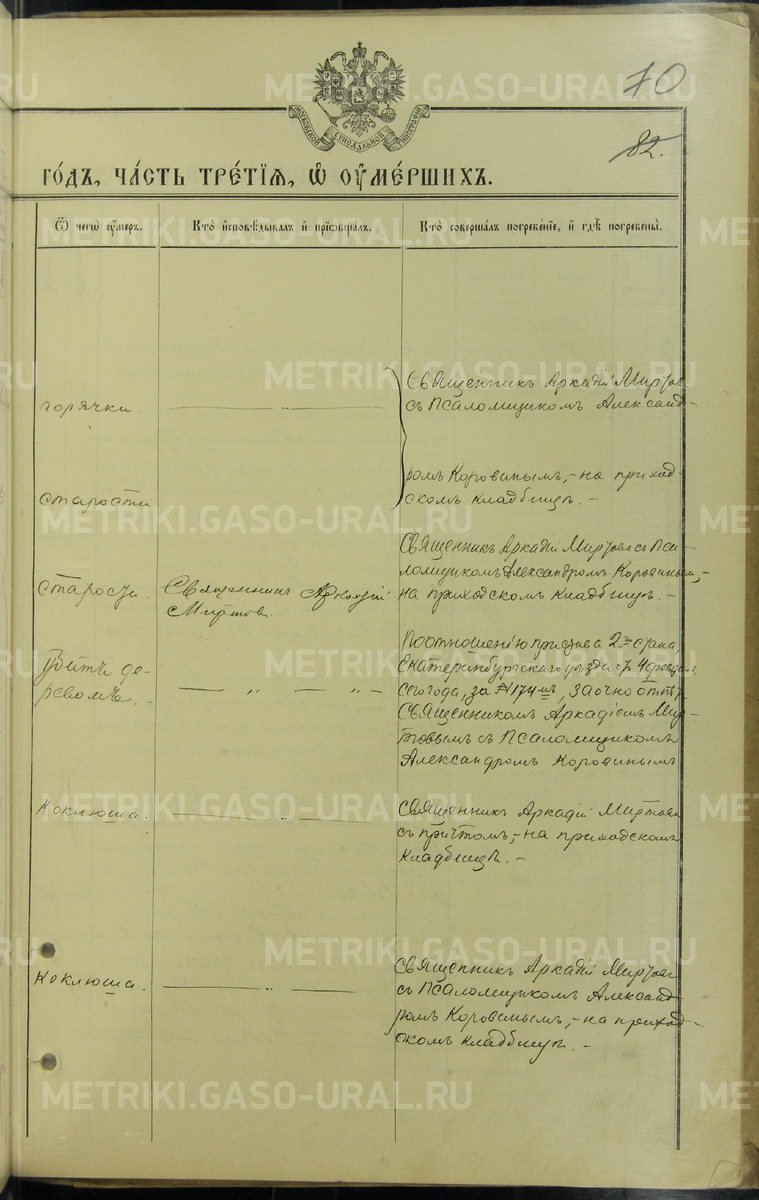 70
82.
МОСКОВСКОЙ СѴНОДАЛЬНОЙ ТИПОГРАФІИ
ГО́ДЪ, ЧА́СТЬ ТРЕ́ТІѦ, Ѡ҆ ОУ҆МЕ́РШИХЪ.
Ѿ чегѡ̀ оу҆́меръ.
Кто̀ и҆сповѣ́дывалъ и҆ прїѡбща́лъ.
Кто̀ соверша́лъ погребе́нїе, и҆ гдѣ̀ погребены̀.
горячки
Священникъ Аркадій Миртовъ
съ Псаломщикомъ Александ-
ромъ Коровинымъ,- на приход-
скомъ кладбищѣ. -
старости
старости.
Священникъ Аркадій
Миртовъ
Священникъ Аркадій Миртовъ съ Пса-
ломщикомъ Александромъ Коровинымъ, -
на приходскомъ кладбищѣ. -
Убитъ де-
ревомъ.
По отношенію пристава 2го стана,
Екатеринбургскаго уѣзда отъ 4 февраля
сего года, за № 174мъ, заочно отпѣтъ
Священникомъ Аркадіемъ Мир-
товымъ съ Псаломщикомъ
Александромъ Коровинымъ
Коклюша.
Священникъ Аркадій Миртовъ
съ причтомъ,- на приходскомъ
кладбищѣ. -
Коклюша.
Священникъ Аркадій Миртовъ
съ Псаломщикомъ Александ-
ромъ Коровинымъ,- на приход-
скомъ кладбищѣ. -
METRIKI.GASO-URAL.RU